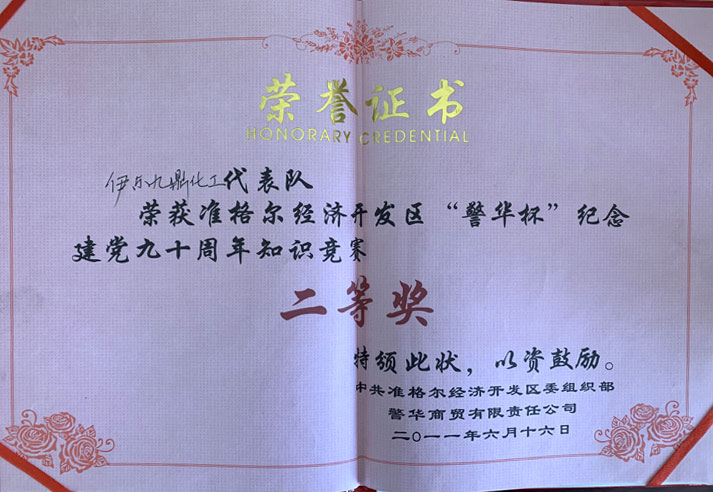 荣誉证书
HONORARY CREDENTIAL
伊东九鼎化工代表队
荣获准格尔经济开发区“警华杯”纪念
建党九十周年知识竞赛
二等奖
特颁此状，以资鼓励。
中共准格尔经济开发区委组织部
警华商贸有限责任公司
二〇一一年六月十六日